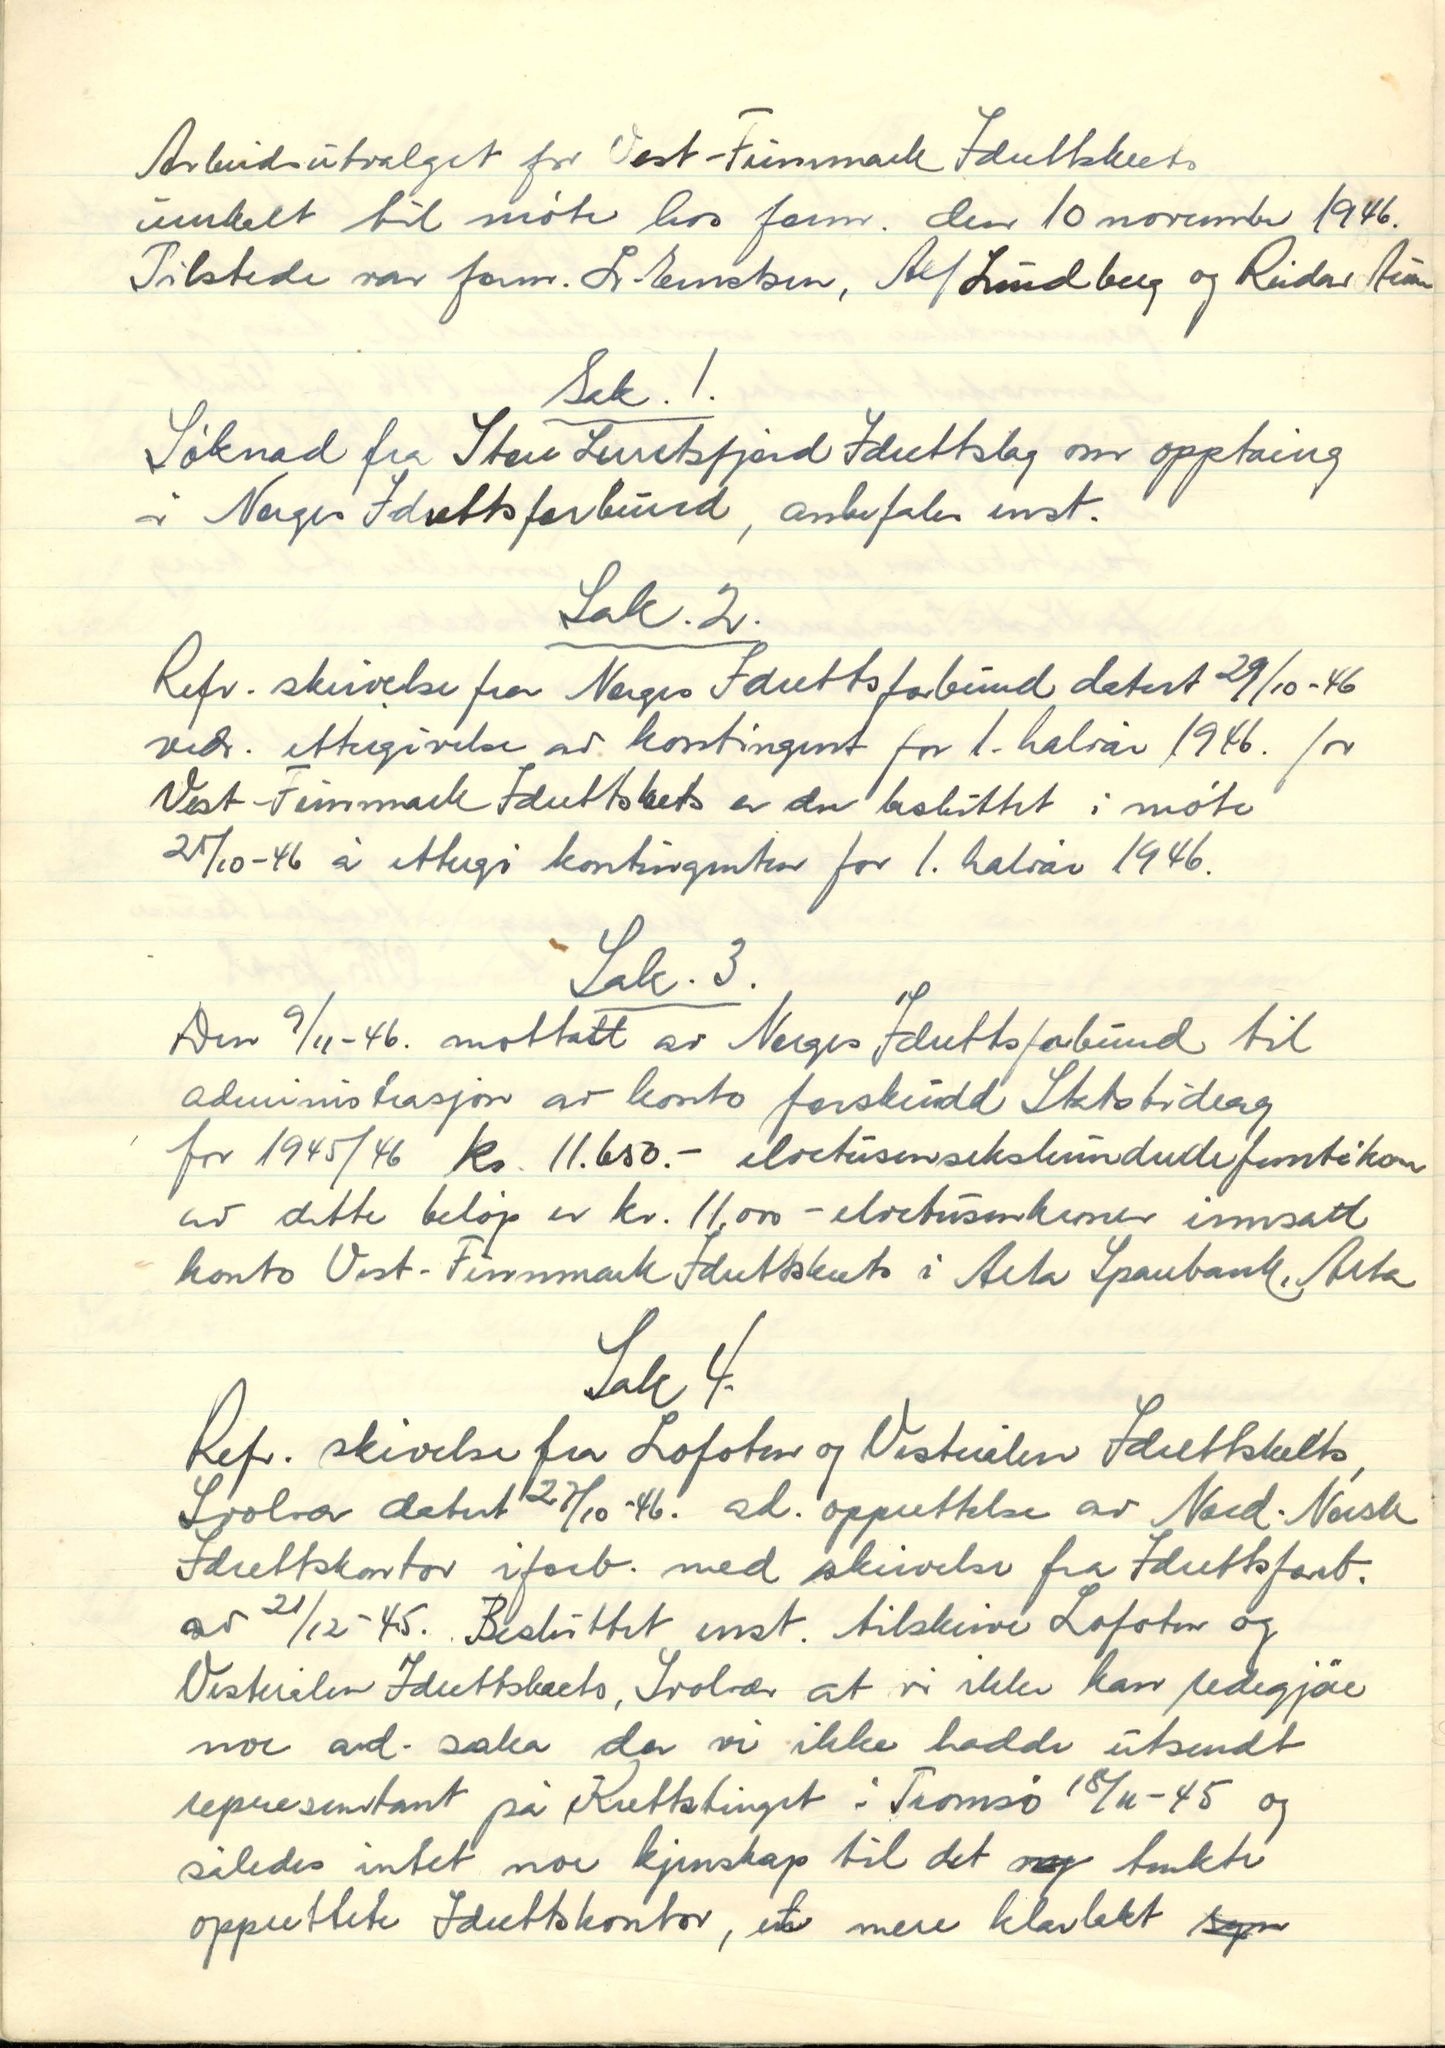 Arbeidsutvalget for Vest-Finnmark Idrettskrets
innkalt til møte hos form. den 10 november 1946.
Tilstede var form. Ernstsen, Alf Lundberg og Reidar
Sak. 1.
Søknad fra Store Lerretsfjord Idrettslag om opptaing
i Norges Idrettsforbund, anbefales enst.
Sak. 2.
Refr. skrivelse fra Norges Idrettsforbund datert 29/10-46
vedr. ettergivelse av kontingent for 1. halvår 1946. for
Vest-Finnmark Idrettskrets er den besluttet i møte
25/10-46 å ettergi kontingenten for 1. halvår 1946.
Sak. 3.
Den 9/11-46. mottatt av Norges Idrettsforbund til
administrasjon av konto forskudd Statsbidrag
for 1945/46 kr. 11.650.- elvetusensekshundredefemtikron
av dette beløp er kr. 11,000 - elvetusenkroner innsatt
konto Vest-Finnmark Idrettskrets i Alta Sparebank, Alta
Sak 4.
Refr. skrivelse fra Lofoten og Vesterålen Idrettskrets,
Svolvær datert 27/10-46. ad. opprettelse av Nord-Norsk
Idrettskontor iforb. med skrivelse fra Idrettsforb.
av 21/12-45. Besluttet enst. tilskrive Lofoten og
Vesterålen Idrettskrets, Svolvær at vi ikke kan redegjøre
noe ad. saka da vi ikke hadde utsendt
representant på Kretstinget i Tromsø 18/11-45 og
således intet noe kjenskap til det tenkte
opprettete Idrettskontor, mere klarlekt